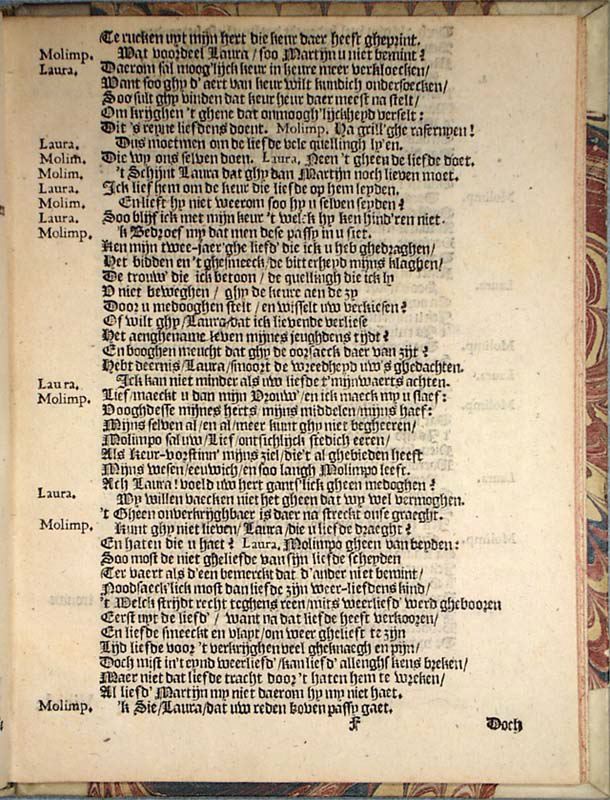 Te rucken uyt mijn hert die keur daer heeft gheprint.
Molimp. Wat voordeel Laura / soo Martijn u niet bemint?
Laura. Daerom sal moog'lijck keur in keure meer verkloecken /
Want soo ghy d'aert van keur wilt kundich ondersoecken /
Soo sult ghy vinden dat keur heur daer meest na stelt /
Om krijghen 't ghene dat onmoogh'lijckheyd verselt:
Dit 's reyne liefdens doent. Molimp. Ha grill'ghe rasernyen!
Laura. Dus moetmen om de liefde vele quellingh lyen.
Molim. Die wy ons selven doen. Laura. Neen 't gheen de liefde doet.
Molim. 't Schijnt Laura dat ghy dan Martijn noch lieven moet.
Laura. Ick lief hem om de keur die liefde op hem leyden.
Molim. En lieft hy niet weerom soo hy u selven seyden?
Laura. Soo blijf ick met mijn keur 't welck hy ken hind'ren niet.
Molimp. 'k Bedroef my dat men dese passy in u siet.
Ken mijn twee-jaer'ghe liefd' die ick u heb ghedraghen /
Het bidden en 't ghesmeeck / de bitterheyd mijns klaghen /
De trouw' die ick betoon / de quellingh die ick ly
V niet beweghen / ghy de keure aen de zy
Door u medooghen stelt / en wisselt uw verkiesen?
Of wilt ghy / Laura / dat ick lievende verliese
Het aenghename leven mijnes jeughdens tijdt?
En booghen meucht dat ghy de oorsaeck daer van zijt?
Hebt deernis / Laura / smoort de wreedheyd uw's ghedachten.
Laura. Ick kan niet minder als uw liefde t'mijnwaerts achten.
Molimp. Lief / maeckt u dan mijn Vrouw / en ick maeck my u slaef:
Vooghdesse mijnes herts / mijns middelen / mijns haef:
Mijns selven al / en al / meer kunt ghy niet begheeren /
Molimpo sal uw / Lief / ontsichlijck stedich eeren /
Als Keur-vorstinn' mijns ziel / die't al ghebieden heeft
Mijns wesen / eeuwich / en soo langh Molimpo leeft.
Ach Laura! voeld uw hert gants'lick gheen medoghen?
Laura. Wy willen vaecken niet het gheen dat wy wel vermoghen.
't Gheen onverkryghbaer is daer na streckt onse graeght.
Molimp. Kunt ghy niet lieven / Laura / die u liefde draeght?
En haten die u haet? Laura. Molimpo gheen van beyden:
Soo most de niet gheliefde van sijn liefde scheyden
Ter vaert als d'een bemerckt dat d'ander niet bemint /
Noodsaeck'lick most dan liefde zijn weer-liefdens kind /
't Welck strijdt recht teghens reen / mits weerliefd' werd ghebooren
Eerst uyt de liefd' / want na dat liefde heeft verkooren /
En liefde smeeckt en vlayt / om weer ghelieft te zijn
Lijd liefde voor 't verkrijghen veel gheknaegh en pijn /
Doch mist in't eynd weerliefd' / kan liefd' allenghskens breken /
Maer niet dat liefde tracht door 't haten hem te wreken /
Al liefd' Martijn my niet daerom hy my niet haet.
Molimp. 'k Sie / Laura / dat uw reden boven passy gaet.
F Doch